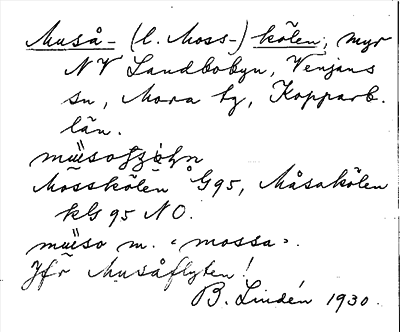 Muså- (l. Moss-) kölen, myr
NV Landbobyn, Venjans
sn, Mora tg, Kopparb.
län.
Mosskölen G95, Måsakölen
kG 95 NO.
m. "mossa".
Jfr Musåflyten!
B. Lindén 1930.